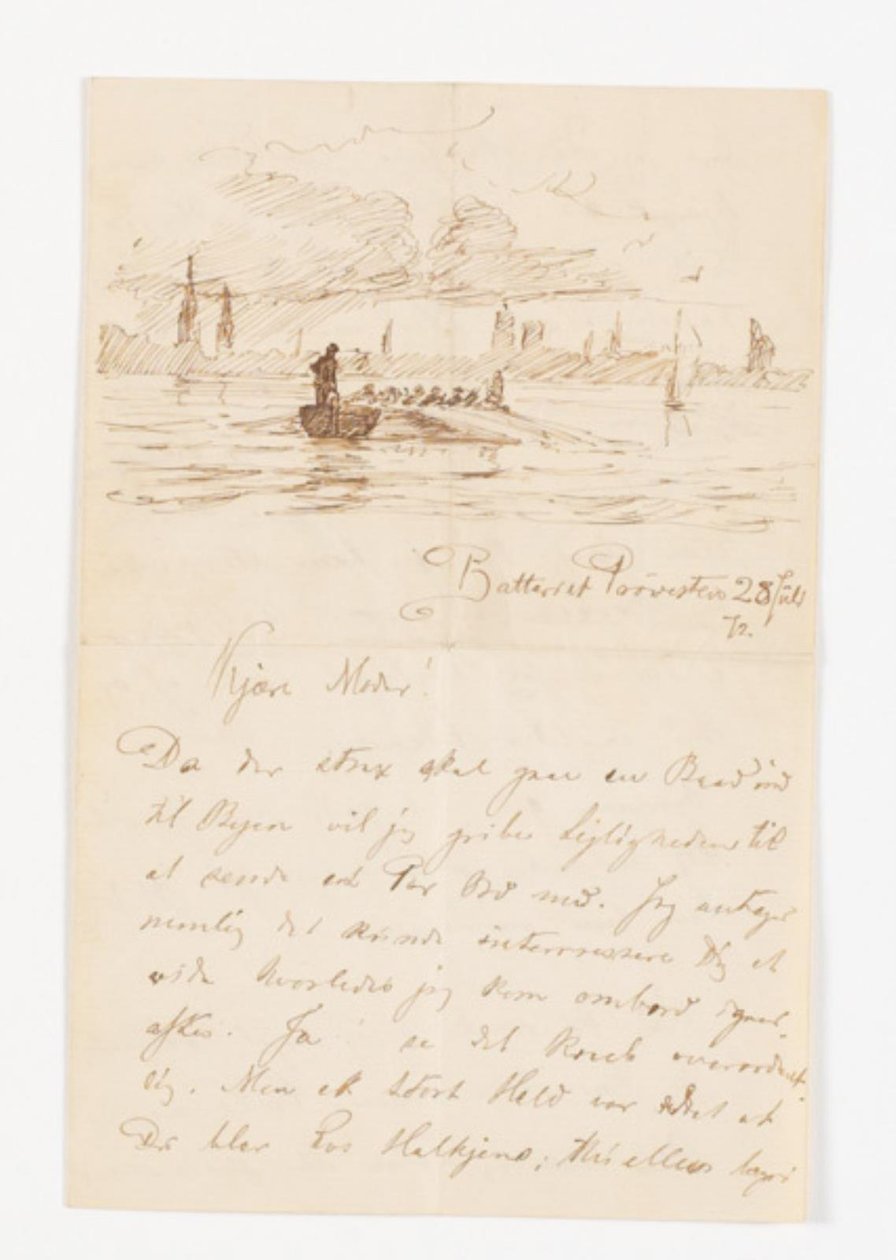 Batteriet Prövesten 28 Juli
72.
Kjære Moder!
Da der strax skal gaae en Baad ind
til Byen vil jeg gribe Lejligheden til
at sende et Par Ord med. Jeg antager
nemlig det kunde interressere Dig at
vide hvorledes jeg kom ombord igaar
aftes. Ja se det kneb overordent-
lig. Men et stort Held var det at
Du blev hos Halkjens; thi ellers